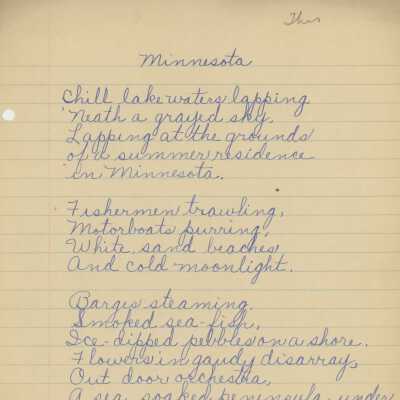 This
Minnesota
Chill lake waters lapping
'Neath a grayed sky.
Lapping at the grounds
of a summer residence
in Minnesota.
Fishermen trawling,
Motorboats purring,
White sand beaches
And cold moonlight.
Barges steaming.
Smoked sea-fish,
Ice-dipped pebbles on a shore.
Flowers in gaudy disarray,
Out door orchestra,
A sea soaked peninsula under